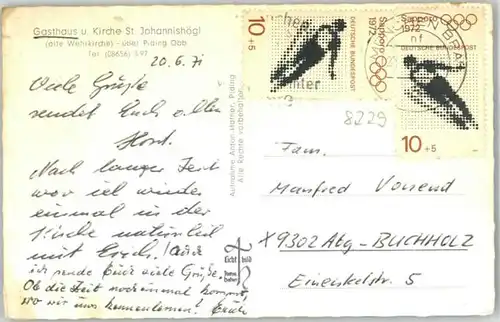 Gasthaus u. Kirche St. Johannishögl
(alte Wehrkirche) - über Piding Obb
Tel. (08656) 597
20.6.71
Viele Grüße
sendet Euch allen
Horst.
Nach langer Zeit
war ich wieder
einmal in der
Kirche natürlich
mit Erich. (Auch
ich sende Euch viele Grüße.
Ob die Zeit noch einmal kommt,
wo wir uns kennenlernen! Erich
Aufnahme Anton Hafner, Piding
Alle Rechte vorbehalten
Licht bild
10+5
DEUTSCHE BUNDESPOST
Sapporo
1972
Sapporo
1972
DEUTSCHE BUNDESPOST
10+5
8229
Fam.
Manfred
X9302 Abg-BUCHHOLZ
5